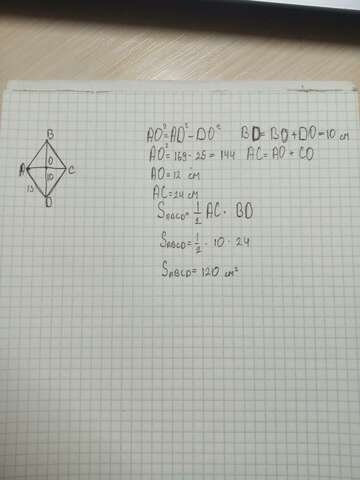 B
O
A
C
10
13
D
AO²=AD²-DO²  BD=BO+DO=10 см
AO²=169-25=144  AC=AO+CO
AO=12 см
AC=24 см
S_ABCD=1/2 AC · BD
S_ABCD=1/2 · 10 · 24
S_ABCD=120 см²